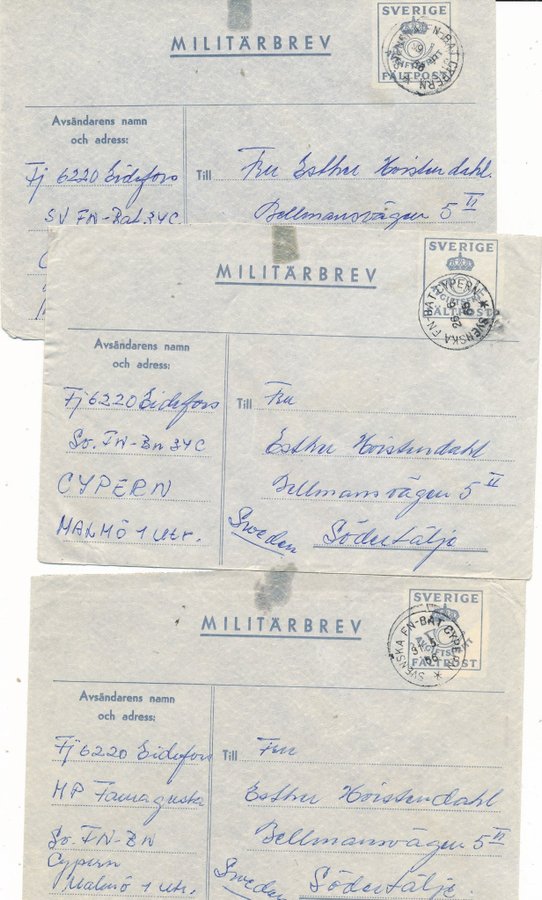 SVERIGE
MILITÄRBREV
FÄLTPOST
SVENSKA FN-BAT CYPERN
Avsändarens namn
och adress:
Fj 6220 Eidefors
SV FN-Bat. 34C
Till Fru Esther Hoistendahl.
Bellmansvägen 5 II
SVERIGE
MILITÄRBREV
AVGIFTSFRITT
FÄLTPOST
SVENSKA FN-BAT CYPERN
26 9 66
Avsändarens namn
och adress:
Fj 6220 Eidefors
Sv. FN-Bn 34C
CYPERN
MALMÖ 1 Utr.
Till Fru
Esther Hoistendahl
Bellmansvägen 5 II
Sweden Södertälje
SVERIGE
MILITÄRBREV
AVGIFTSFRITT
FÄLTPOST
SVENSKA FN-BAT CYPERN
Avsändarens namn
och adress:
Fj 6220 Eidefors
MP Famagusta
Sv. FN-BN
Cypern
Malmö 1 Utr.
Till Fru
Esther Hoistendahl
Bellmansvägen 5 II
Sweden Södertälje.